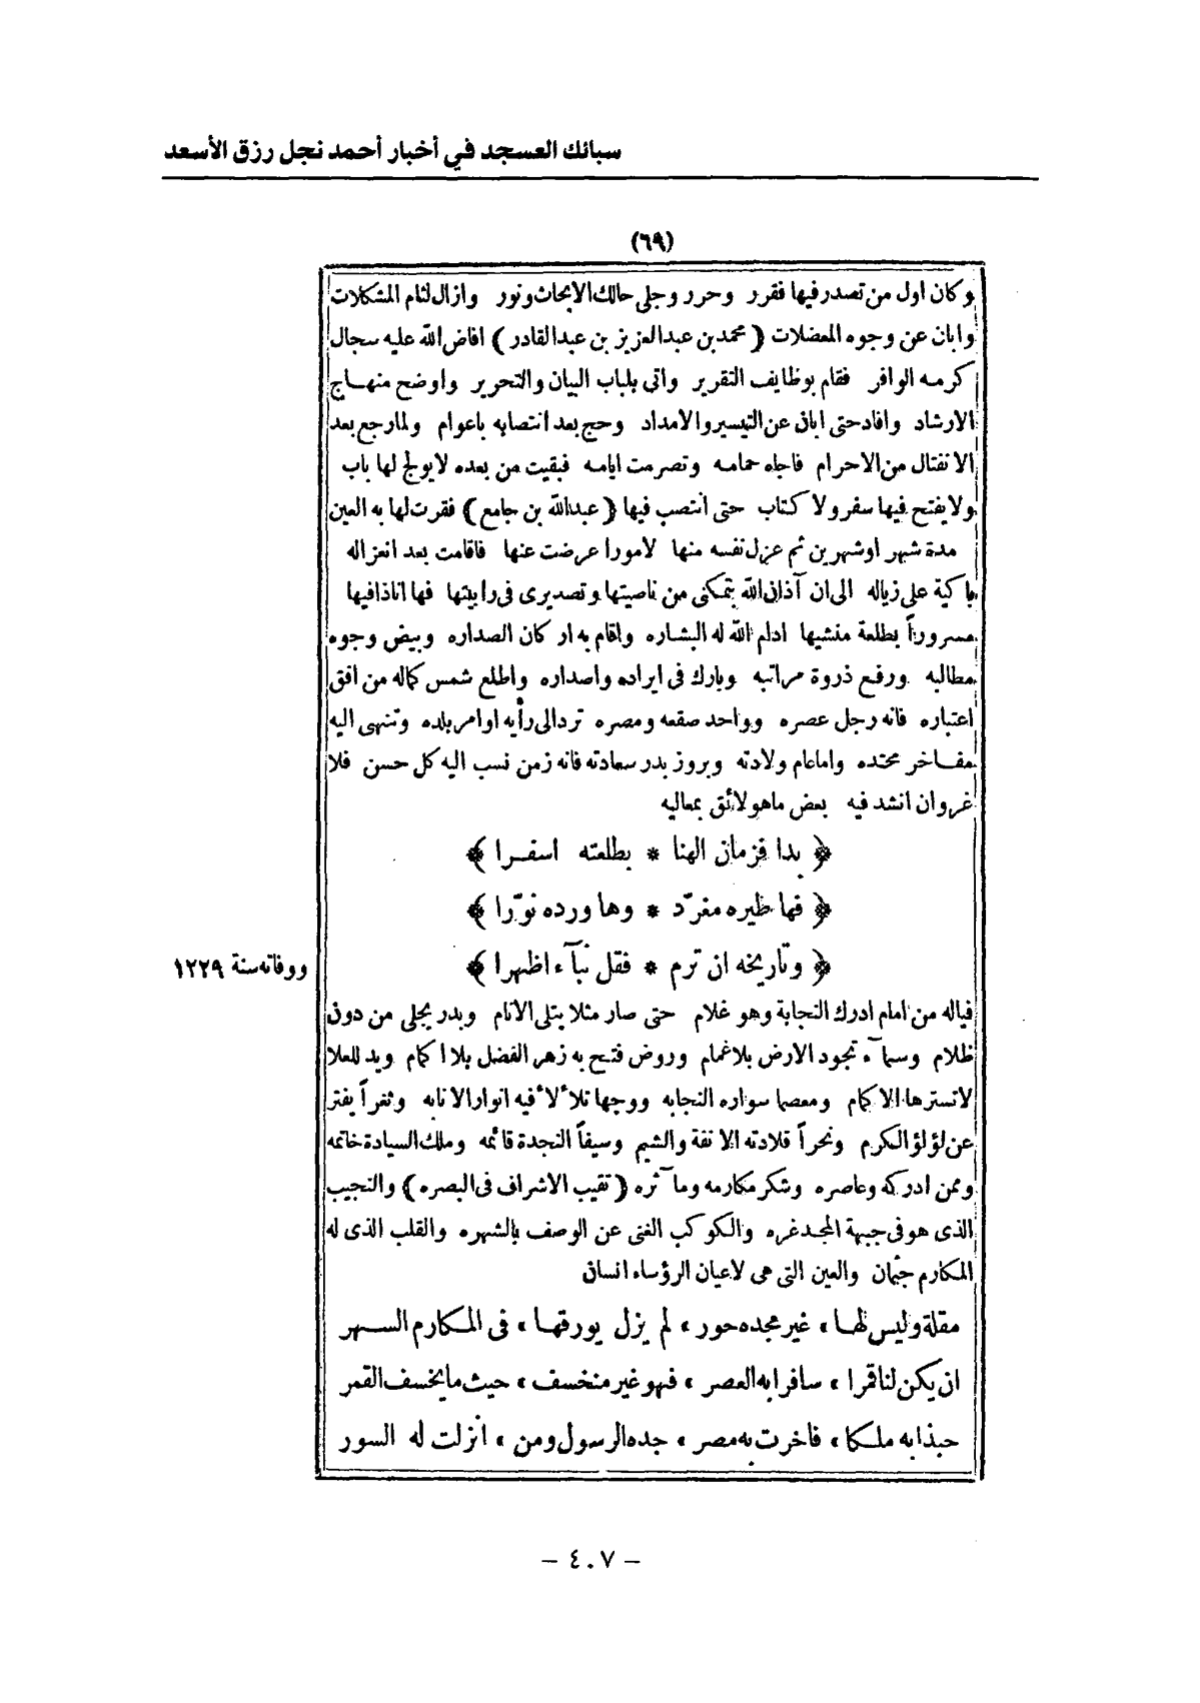 سبائك العسجد في أخبار أحمد نجل رزق الأسعد
(٦٩)
وكان اول من تصدر فيها فقرر وحرر وجلى حالك الابحاث ونور وازال لثام المشكلات
وابان عن وجوه المعضلات ( محمد بن عبدالعزيز بن عبدالقادر ) افاض الله عليه سجال
كرمه الوافر فقام بوظايف التقرير واتى بلباب البيان والتحرير واوضح منهاج
الارشاد وافاد حتى ابان عن التيسير والامداد وحج بعد انتصابه باعوام ولما رجع بعد
الانفتال من الاحرام فاجاه حمامه وتصرمت ايامه فبقيت من بعده لايولج لها باب
ولا يفتح فيها سفر ولا كتاب حتى انتصب فيها ( عبدالله بن جامع ) فقرت لها به العين
مدة شهر اوشهرين ثم عزل نفسه منها لامورا عرضت عنها فاقامت بعد انعزاله
باكية على زياله الى ان آذان الله بتمكنى من ناصيتها وتصديرى فى رابيتها فها انا ذا فيها
مسروراً بطلعة منشيها ادلم الله له البشاره واقام به اركان الصداره وبيض وجوه
مطالبه ورفع ذروة مراتبه وبارك فى ايراده واصداره واطلع شمس كماله من افق
اعتباره فانه رجل عصره وواحد صقعه ومصره تردالى رأيه اوامر بلده وتنهى اليه
مفاخر محتده واما عام ولادته وبروز بدر سعادته فانه زمن نسب اليه كل حسن فلا
غروان انشد فيه بعض ماهو لائق بمعاليه
﴿ بدا فزمان الهنا * بطلعته اسفرا ﴾
﴿ فها طيره مغرّد * وها ورده نوّرا ﴾
﴿ وتاريخه ان ترم * فقل نبآء اظهرا ﴾
ووفاته سنة ١٢٢٩
فياله من امام ادرك النجابة وهو غلام حتى صار مثلا يتلى الانام وبدر يجلى من دون
ظلام وسمآء تجود الارض بلا غمام وروض فتح به زهر الفضل بلا اكمام ويد للعلا
لا تسترها الاكمام ومعصما سواره النجابه ووجها تلألأ فيه انوار الانابه وثغراً يفتر
عن لؤلؤ الكرم ونحراً قلادته الانفة والشيم وسيفاً النجدة قائمه وملك السيادة خاتمه
وممن ادركه وعاصره وشكر مكارمه ومآثره ( نقيب الاشراف فى البصره ) والنجيب
الذى هو فى جبهة المجد غره والكوكب الغنى عن الوصف بالشهره والقلب الذى له
المكارم جثمان والعين التى هى لاعيان الرؤساء انسان
مقلة وليس لها ، غير مجده حور ، لم يزل يورقها ، فى المكارم السهر
ان يكن لنا قمرا ، سافرا به العصر ، فهو غير منخسف ، حيث ما يخسف القمر
حبذا به ملكا ، فاخرت به مصر ، جده الرسول ومن ، انزلت له السور
– ٤٠٧ –